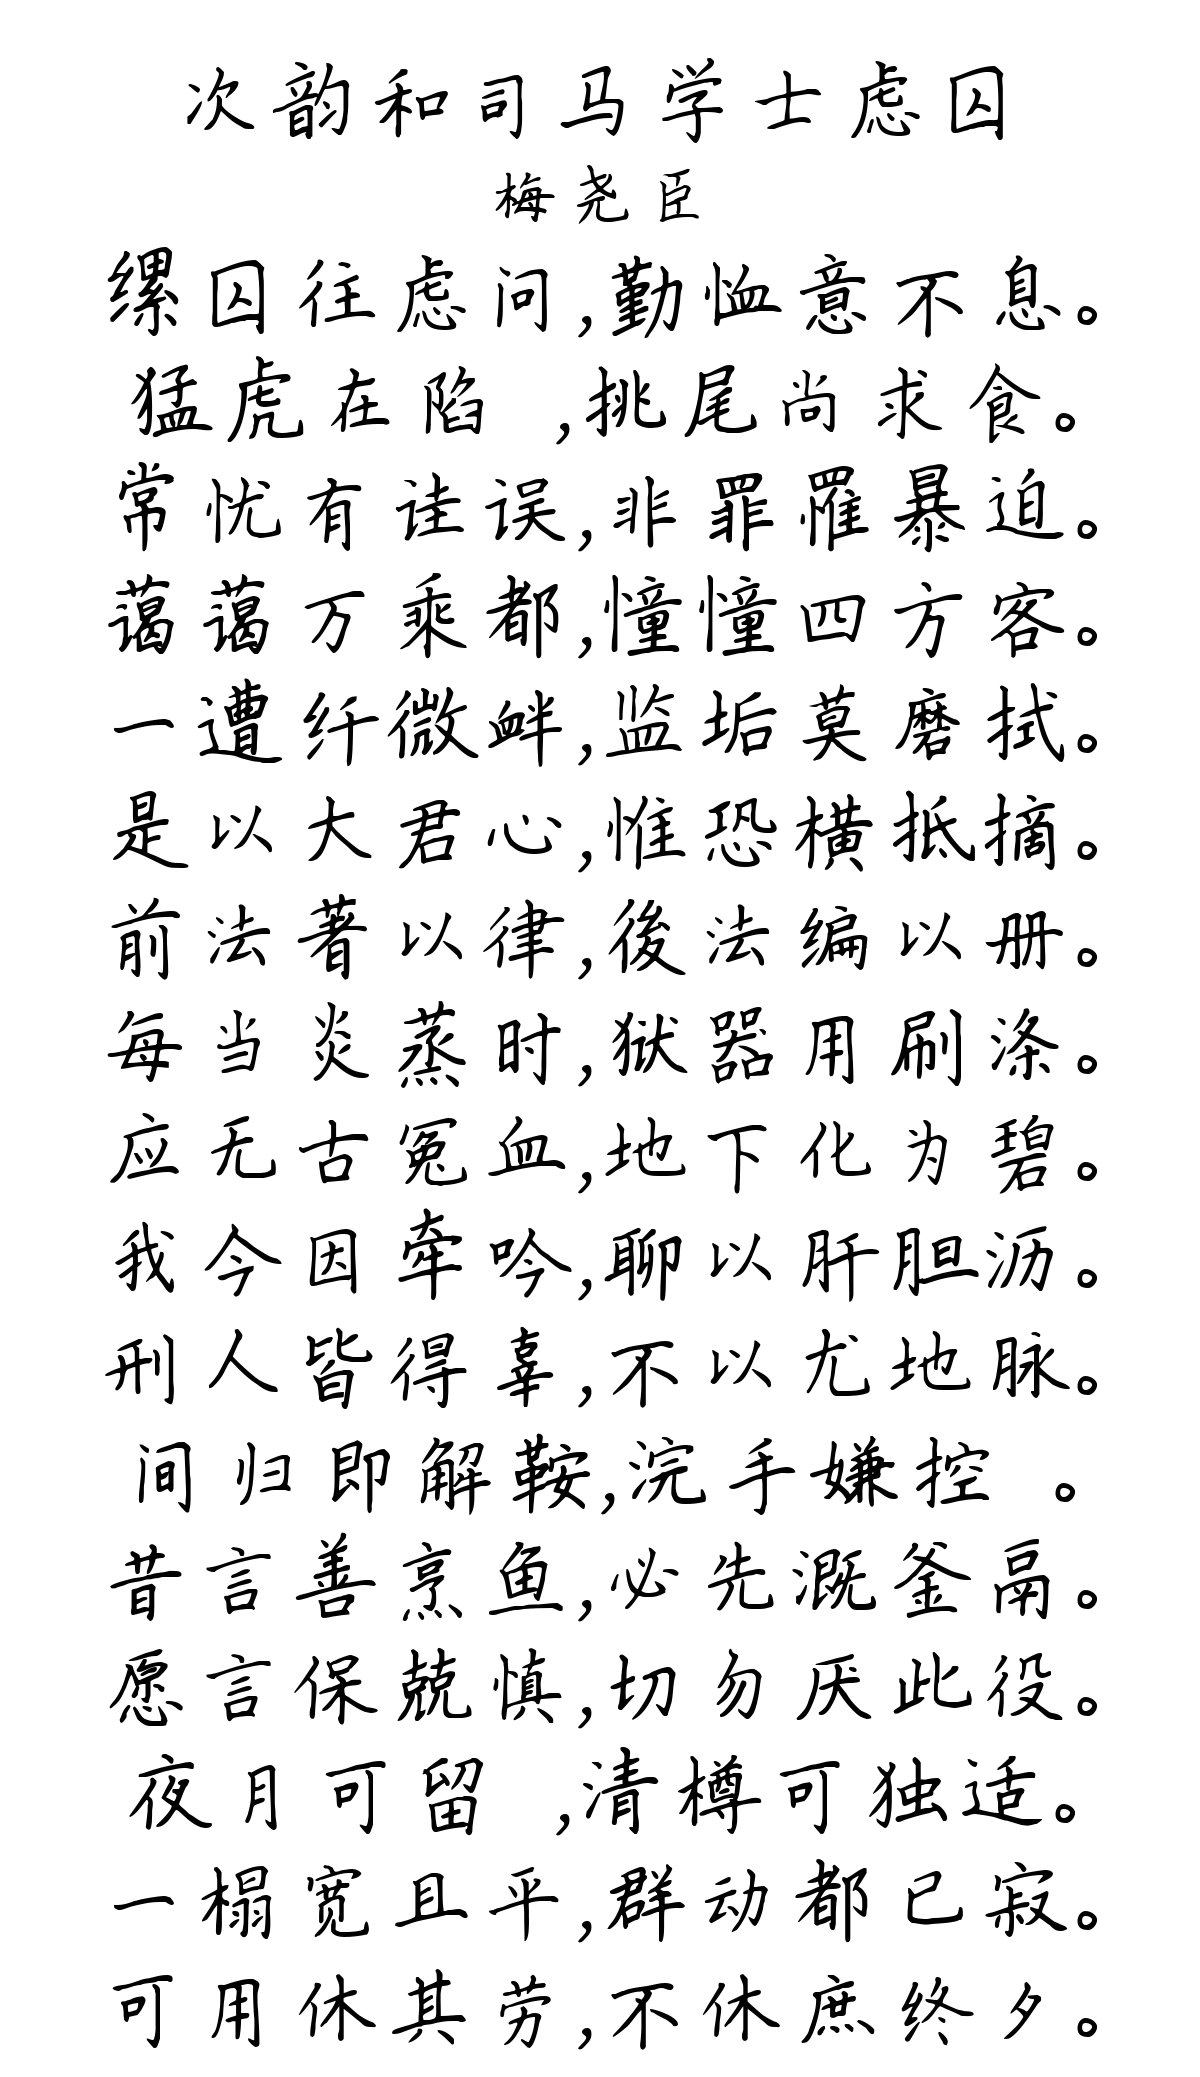 次韵和司马学士虑囚
梅尧臣
缧囚往虑问,勤恤意不息。
猛虎在陷 ,挑尾尚求食。
常忧有诖误,非罪罹暴迫。
蔼蔼万乘都,憧憧四方客。
一遭纤微衅,监垢莫磨拭。
是以大君心,惟恐横抵摘。
前法著以律,後法编以册。
每当炎蒸时,狱器用刷涤。
应无古冤血,地下化为碧。
我今因牵吟,聊以肝胆沥。
刑人皆得辜,不以尤地脉。
间归即解鞍,浣手嫌控 。
昔言善烹鱼,必先溉釜鬲。
愿言保兢慎,切勿厌此役。
夜月可留 ,清樽可独适。
一榻宽且平,群动都已寂。
可用休其劳,不休庶终夕。